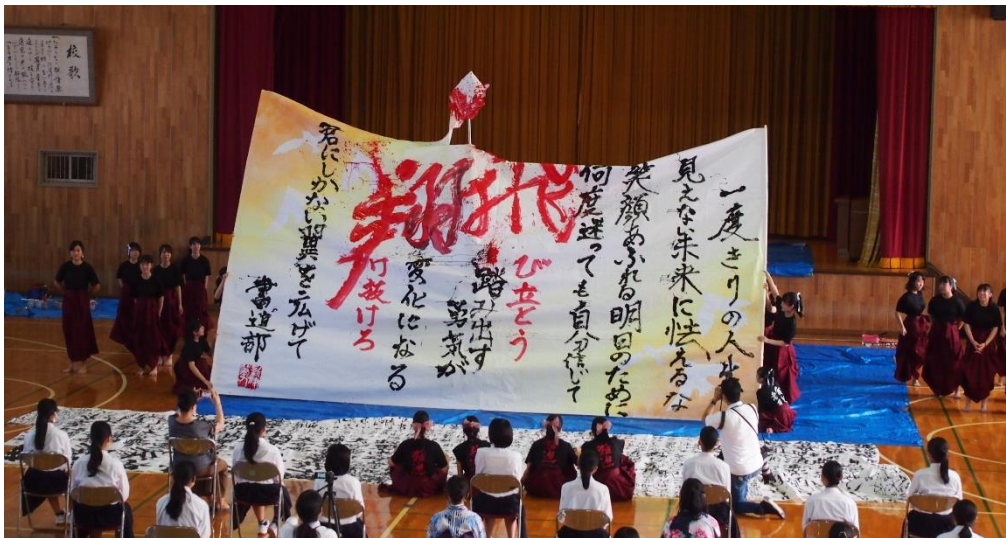 一度きりの人生
見えない未来に怯えるな
笑顔あふれる明日のために
何度迷っても自分信じて
飛び立とう
踏み出す
勇気が
変化になる
翔け抜けろ
君にしかない翼を広げて
書道部
校歌